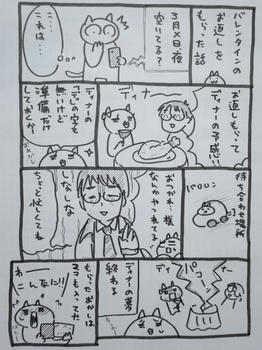 バレンタインの
お返しを
もらった話
3月×日夜
空いてる?
これは…
お返しもらって
ディナーの予感い
ディナー
ディナーの
デの字も
無いけど
準備だけ
しておくか
待ち合わせ場所
バロロン
おつかれー、僕
なんかやつれてる
しなしな
ちょっと忙しくてね
ディ
ナー
パコーン
ディナーの夢
終わる
もらったおかしは
スコもらってた
わー
こんなに!!